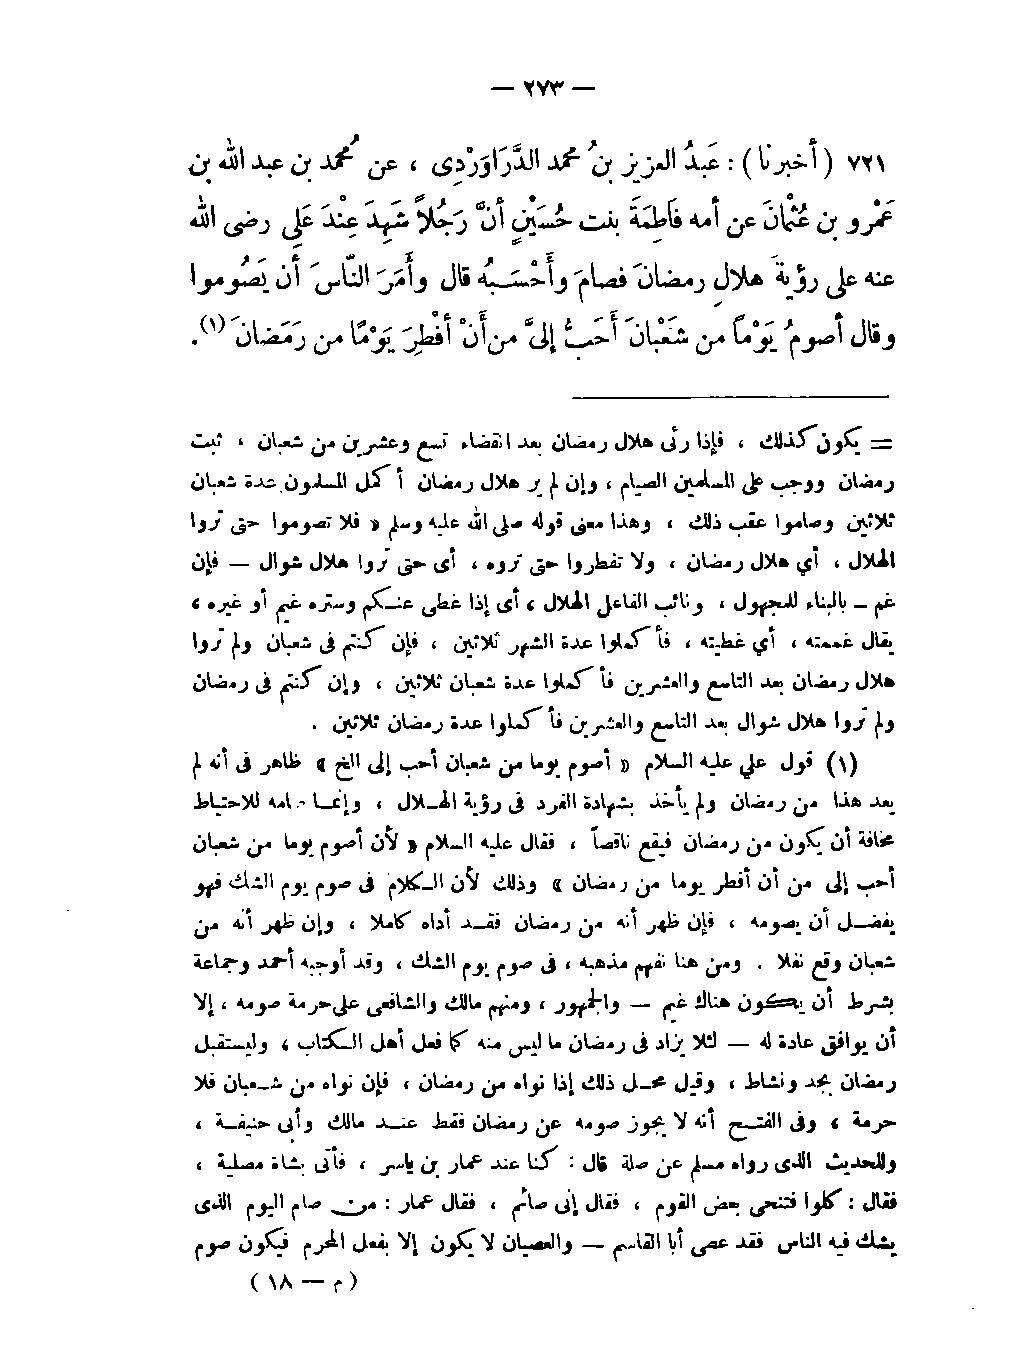 — ٢٧٣ —
٧٢١ ( أَخبرنا ) : عَبدُ العزيز بنُ محمد الدَّرَاوَرْدِى ، عن مُحمد بن عبد الله بن
عَمْرو بن عُثْمَانَ عن أمه فَاطِمَةَ بنت حُسَيْنٍ أنَّ رَجُلاً شَهِدَ عِنْدَ عَلِي رضى الله
عنه على رؤيةَ هلالِ رمضانَ فصامَ وأَحْسَبُهُ قال وأَمَرَ النَّاسَ أن يَصُوموا
وقال أصومُ يَوْمًا من شَعْبَانَ أَحَبُّ إلىَّ من أَنْ أفْطِرَ يَوْمًا من رَمَضَانَ (١) .
= يكون كذلك ، فإذا رئى هلال رمضان بعد انقضاء تسع وعشرين من شعبان ، ثبت
رمضان ووجب على المسلمين الصيام ، وإن لم ير هلال رمضان أكمل المسلمون عدة شعبان
ثلاثين وصاموا عقب ذلك ، وهذا معنى قوله صلى الله عليه وسلم « فلا تصوموا حتى تروا
الهلال ، أي هلال رمضان ، ولا تفطروا حتى تروه ، أى حتى تروا هلال شوال — فإن
غم — بالبناء للمجهول ، ونائب الفاعل الهلال ، أى إذا غطى عنكم وستره غيم أو غيره ،
يقال غممته ، أي غطيته ، فأكملوا عدة الشهر ثلاثين ، فإن كنتم فى شعبان ولم تروا
هلال رمضان بعد التاسع والعشرين فأكملوا عدة شعبان ثلاثين ، وإن كنتم فى رمضان
ولم تروا هلال شوال بعد التاسع والعشرين فأكملوا عدة رمضان ثلاثين .
(١) قول علي عليه السلام « أصوم يوما من شعبان أحب إلى الخ » ظاهر فى أنه لم
يعد هذا من رمضان ولم يأخذ بشهادة الفرد فى رؤية الهلال ، وإنما صامه للاحتياط
مخافة أن يكون من رمضان فيقع ناقصاً ، فقال عليه السلام « لأن أصوم يوما من شعبان
أحب إلى من أن أفطر يوما من رمضان » وذلك لأن الكلام فى صوم يوم الشك فهو
يفضل أن يصومه ، فإن ظهر أنه من رمضان فقد أداه كاملا ، وإن ظهر أنه من
شعبان وقع نفلا . ومن هنا نفهم مذهبه ، فى صوم يوم الشك ، وقد أوجبه أحمد وجماعة
بشرط أن يكون هناك غيم — والجمهور ، ومنهم مالك والشافعى على حرمة صومه ، إلا
أن يوافق عادة له — لئلا يزاد فى رمضان ما ليس منه كما فعل أهل الكتاب ، وليستقبل
رمضان بجد ونشاط ، وقيل محل ذلك إذا نواه من رمضان ، فإن نواه من شعبان فلا
حرمة ، وفى الفتح أنه لا يجوز صومه عن رمضان فقط عند مالك وأبى حنيفة ،
وللحديث الذى رواه مسلم عن صلة قال : كنا عند عمار بن ياسر ، فأتى بشاة مصلية ،
فقال : كلوا فتنحى بعض القوم ، فقال إنى صائم ، فقال عمار : من صام اليوم الذى
يشك فيه الناس فقد عصى أبا القاسم — والعصيان لا يكون إلا بفعل المحرم فيكون صوم
( م — ١٨ )